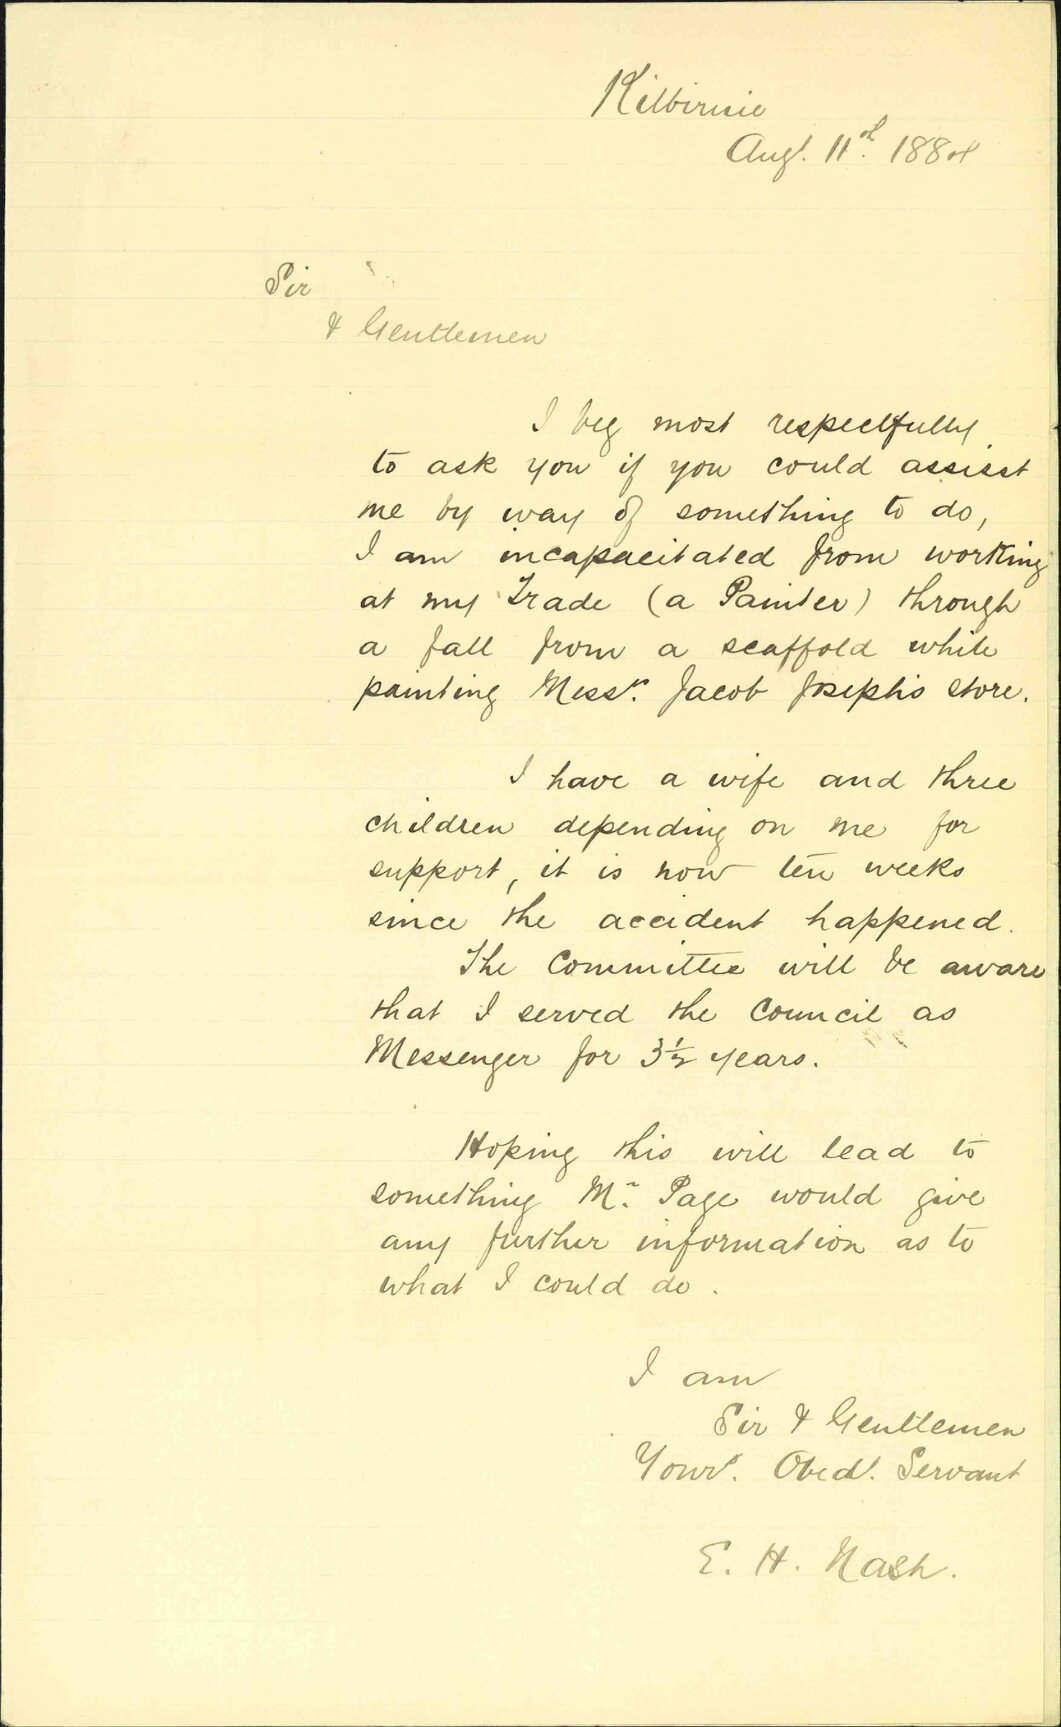 Kilbirnie
Augt. 11th. 1884
Sir
& Gentlemen
I beg most respectfully
to ask you if you could assisst
me by way of something to do,
I am incapacitated from working
at my Trade (a Painter) through
a fall from a scaffold while
painting Messrs. Jacob Joseph's store.
I have a wife and three
children depending on me for
support, it is now ten weeks
since the accident happened.
The Committee will be aware
that I served the Council as
Messenger for 3½ years.
Hoping this will lead to
something Mr. Page would give
any further information as to
what I could do.
I am
Sir & Gentlemen
Your. Obedt. Servant
E. H. Nash.